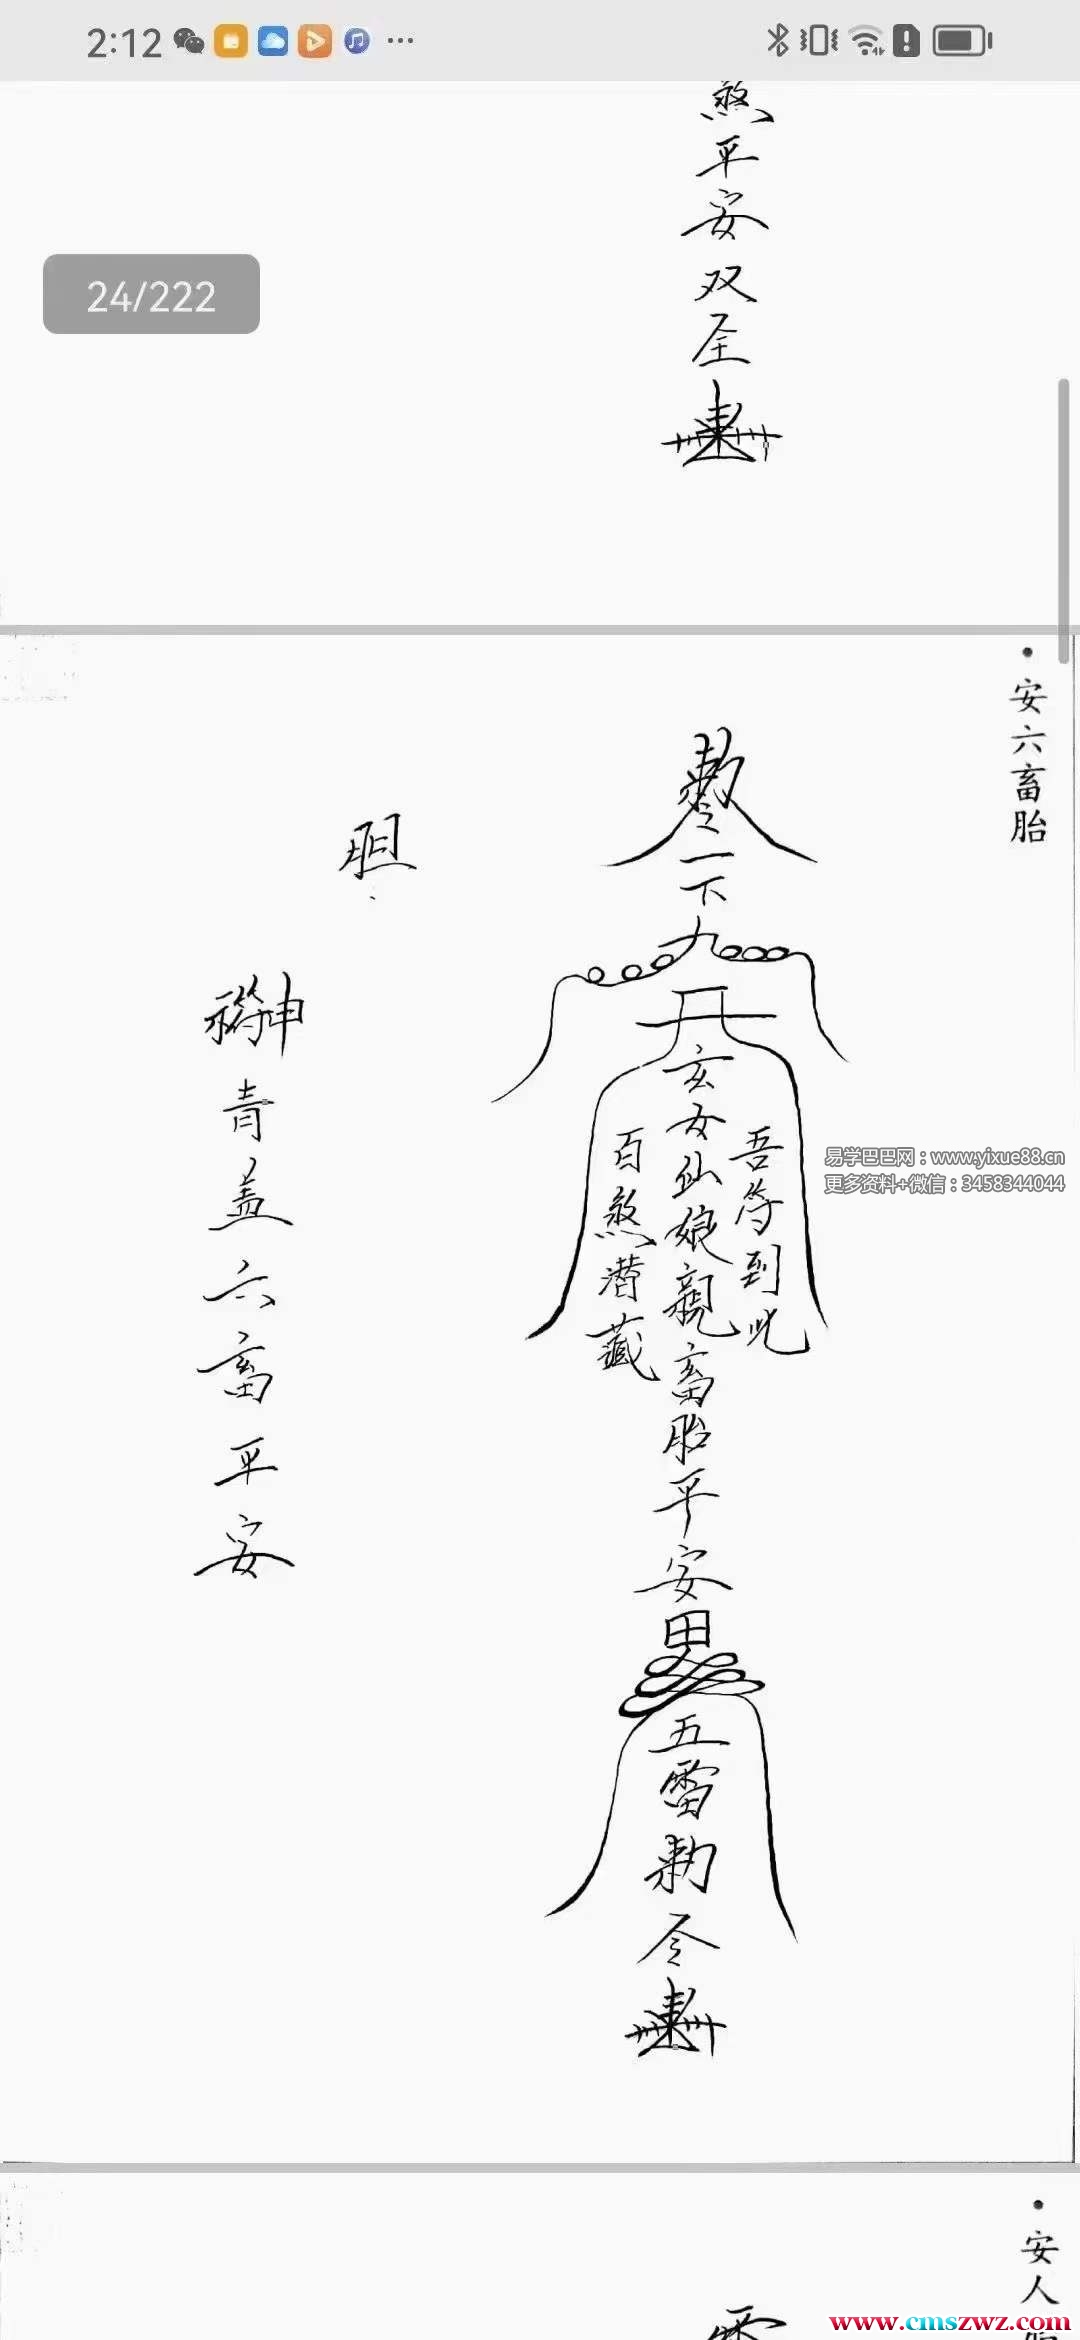 2:12
24/222
煞平安双全
安六畜胎
敕令
一下九
玄女仙娘親畜胎平安
吾符到此
百煞潜藏
五雷勅令
胆
青盖六畜平安
易学巴巴网：www.yixue88.cn
更多资料+微信：3458344044
安人
www.cmszwz.com